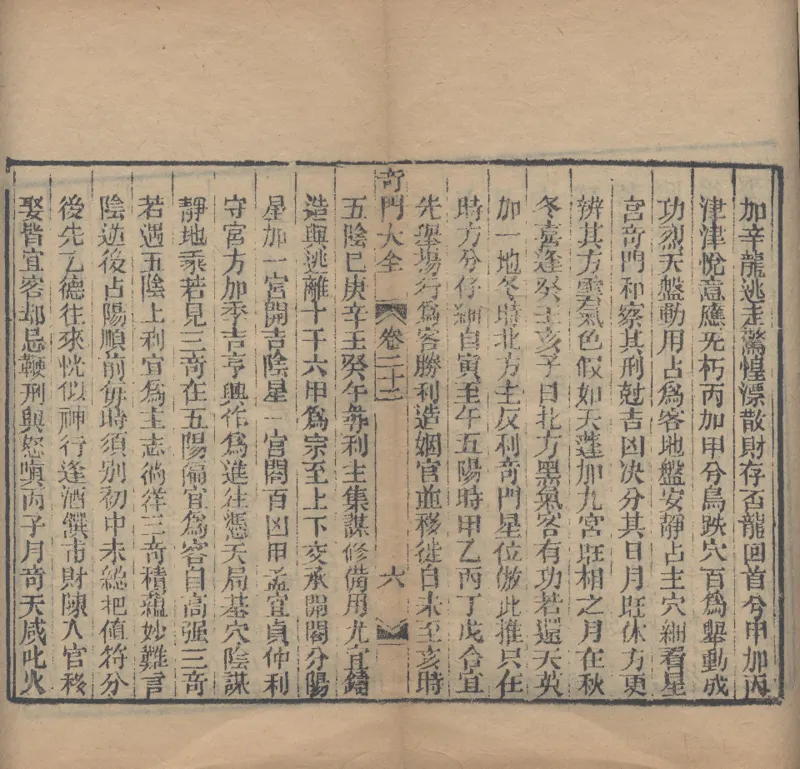 加辛龍逃走驚惶漂散財存否龍回首兮甲加丙
津津悅意應无朽丙加甲兮鳥跌穴百爲舉動成
功烈天盤動用占爲客地盤安靜占主穴細看星
宮奇門和察其刑尅吉凶决分其日月旺休方更
辨其方雲氣色假如天蓬加九宮旺相之月在秋
冬喜逢癸壬亥子日北方黑氣客有功若還天英
加一地冬時北方主反利奇門星位倣此推只在
時方分仔細自寅至午五陽時甲乙丙丁戊合宜
先舉場行爲客勝利造姻官並移徙自未至亥時
奇門大全 卷二十三 六
五陰巳庚辛壬癸午為利主集謀修備用尤宜鑄
造與逃離十干六甲爲宗至上下交承開闔分陽
星加一宮開吉陰星一宮闔百凶甲孟宜貞仲利
守宮方加季吉亨興作爲進往憑天局基穴陰謀
靜地乘若見三奇在五陽偏宜爲客自高强三奇
若遇五陰上利宜爲主志徜徉三奇積蘊妙難言
陰逆後占陽順前每時須別初中末總把値符分
後先乙德往來恍似神行逢酒饌市財陳入官移
娶皆宜客却忌鞭刑與怒嗔丙子月奇天威叱火